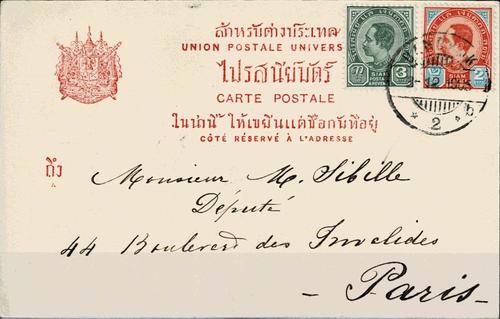 สำหรับต่างประเทศ
UNION POSTALE UNIVERS
ไปรสนียบัตร์
CARTE POSTALE
ในน่านี้ ให้เขียนแต่ชื่อกับที่อยู่
CÔTÉ RÉSERVÉ À L'ADRESSE
SIAM
3
SIAM
2
1905
2 b
ถึง
Monsieur M. Sibille
Député
44 Boulevard des Invalides
– Paris –